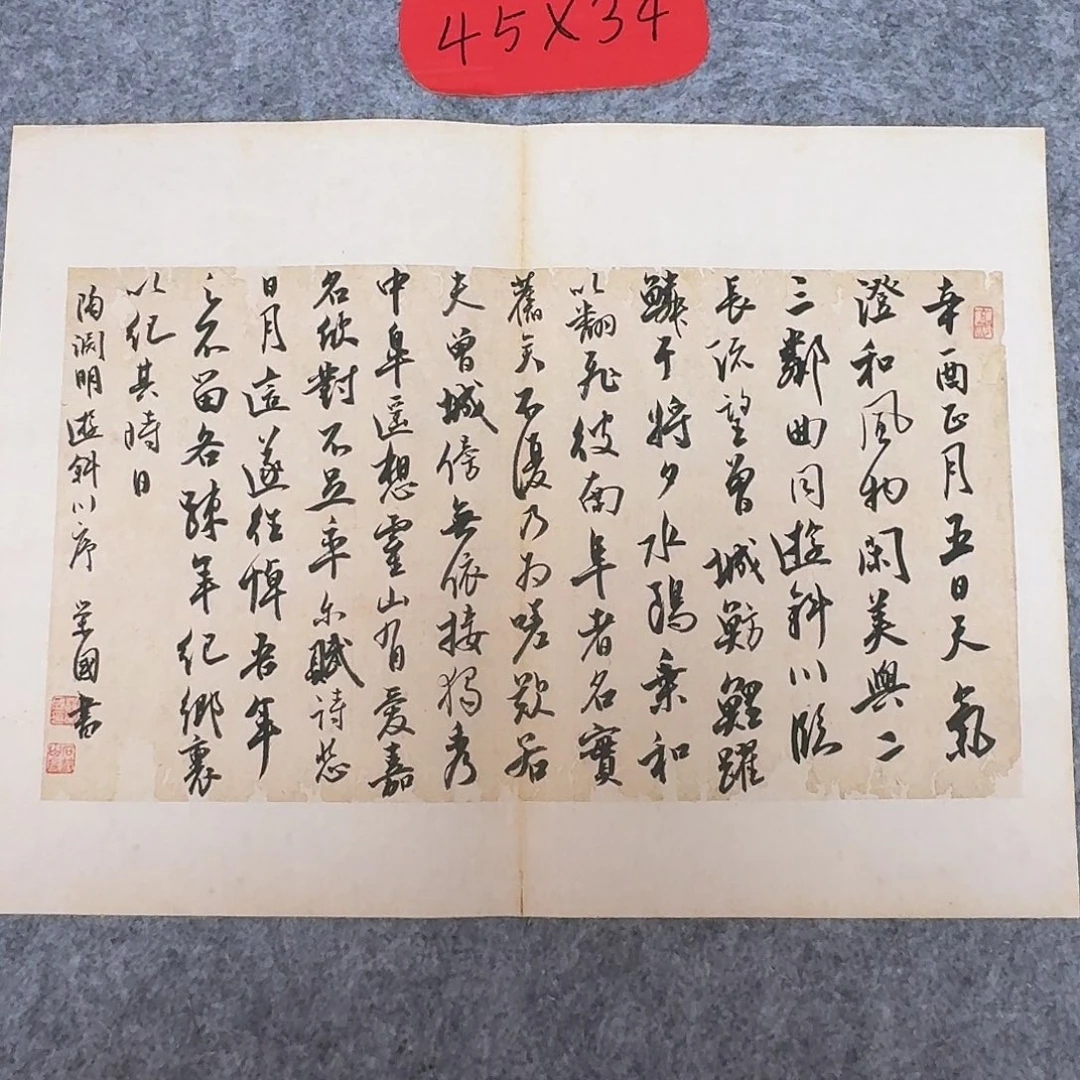 45X34
辛酉正月五日天氣
澄和風物閑美與二
三鄰曲同遊斜川臨
長流望曾城魴鯉躍
鱗于將夕水鷗乘和
以翻飛彼南阜者名實
舊矣不復乃為嗟歎若
夫曾城傍無依接獨秀
中皋遥想靈山有愛嘉
名欣對不足率尔賦詩悲
日月這遂往悼吾年
之不留各疎年紀鄉裏
以纪其時日
陶淵明遊斜川序 國書